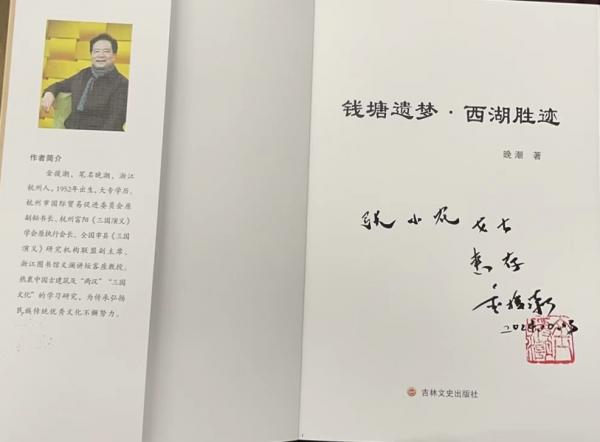 作者简介
金援潮，笔名晚潮，浙江
杭州人，1952年出生，大专学历。
杭州市国际贸易促进委员会原
副秘书长、杭州富阳《三国演义》
学会原执行会长、全国市县《三国
演义》研究机构联盟副主席、
浙江图书馆文澜讲坛客座教授。
热衷中国古建筑及“两汉”“三国
文化”的学习研究，为传承弘扬
民族传统优秀文化不懈努力。
钱塘遗梦·西湖胜迹
晚潮 著
张小 女士
惠存
金援潮
吉林文史出版社